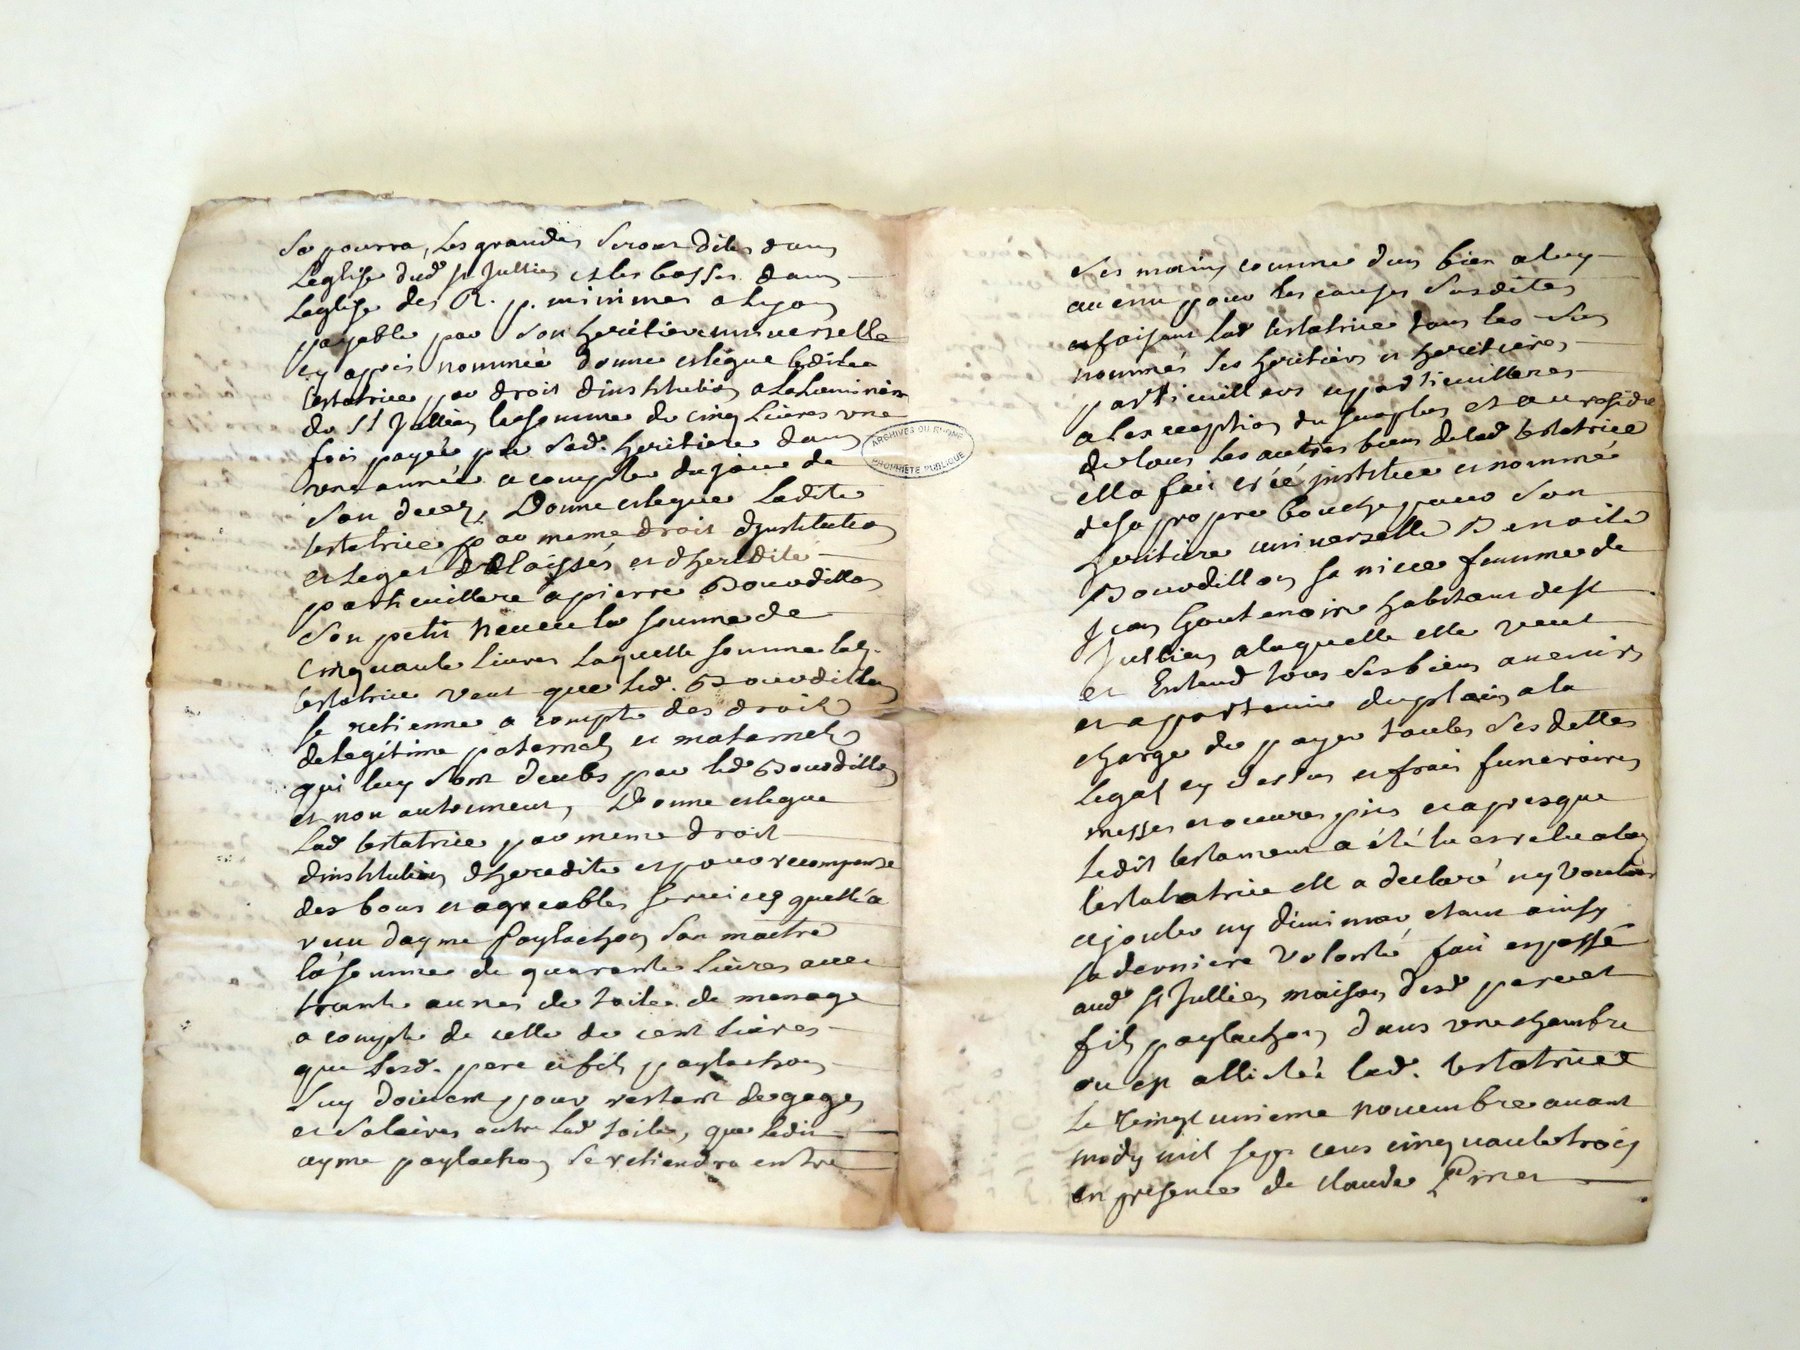 Se pourra, Les grandes seront dites dans
Leglise dud. st Jullien et les basses dans
Leglise des R. p. minimes a Lyon
payable par son heritiere universelle
cy appres nommée donne et légue laditte
testatrice par droit dinstitution a la Luminaire
de St Jullien la somme de cinq Livres une
fois payée par sad. heritiere dans
une année a compter du jour de
son decez, Donne et legue Ladite
testatrice par meme droit dinstitution
et leget delaissés et dheredité
particuillere a pierre Bourdillon
son petit neveu la somme de
cinquante Livres Laquelle somme lad.
testatrice veut que led. Bourdillon
se retienne a compte des droits
de legitime paternels et maternels
qui luy sont deubs par led Bourdillon
et non autrement, Donne et legue
Lad testatrice par meme droit
dinstitution dheredité et pour recompense
des bons et agreables services quelle a
receu dayme paylachon son maitre
la somme de quarante Livres avec
trante aunes de toile de menage
a compte de celle de cent Livres
que Lesd. pere et fils paylachon
Luy doivent pour restant de gages
et salaires outre lad toile, que ledit
ayme paylachon se retiendra entre
ARCHIVES DU RHONE
PROPRIÉTÉ PUBLIQUE
Ses mains comme dun bien a luy
avenu pour les causes susdites
et faisant lad testatrice tous les sus
nommés ses heritiers et heritieres
particuilliers et particuillieres
a Lexception du surplus et au residu
de tous les autres biens de lad testatrice
ella fait créé institué et nommé
de sa propre bouche pour son
heritiere universelle Benoite
Bourdillon sa niece femme de
Jean Goutenoire habitant de st
Jullien a laquelle elle veut
et Entend tous ses biens avenir
et apartenir de plain a la
charge de payer toutes ses dettes
Legats cy dessus et frais funeraires
messes et oeuvres pies et apres que
Ledit testament a été lu et relu a lad
testatrice ell a declaré ny vouloir
ajouter ny diminuer etant ainsy
sa derniere volonté fait et passé
aud St Jullien maison desd pere et
fils paylachon dans une chambre
ou est allitée lad. testatrice
Le vingt unieme novembre avant
midy mil sept cens cinquante trois
en presence de claude